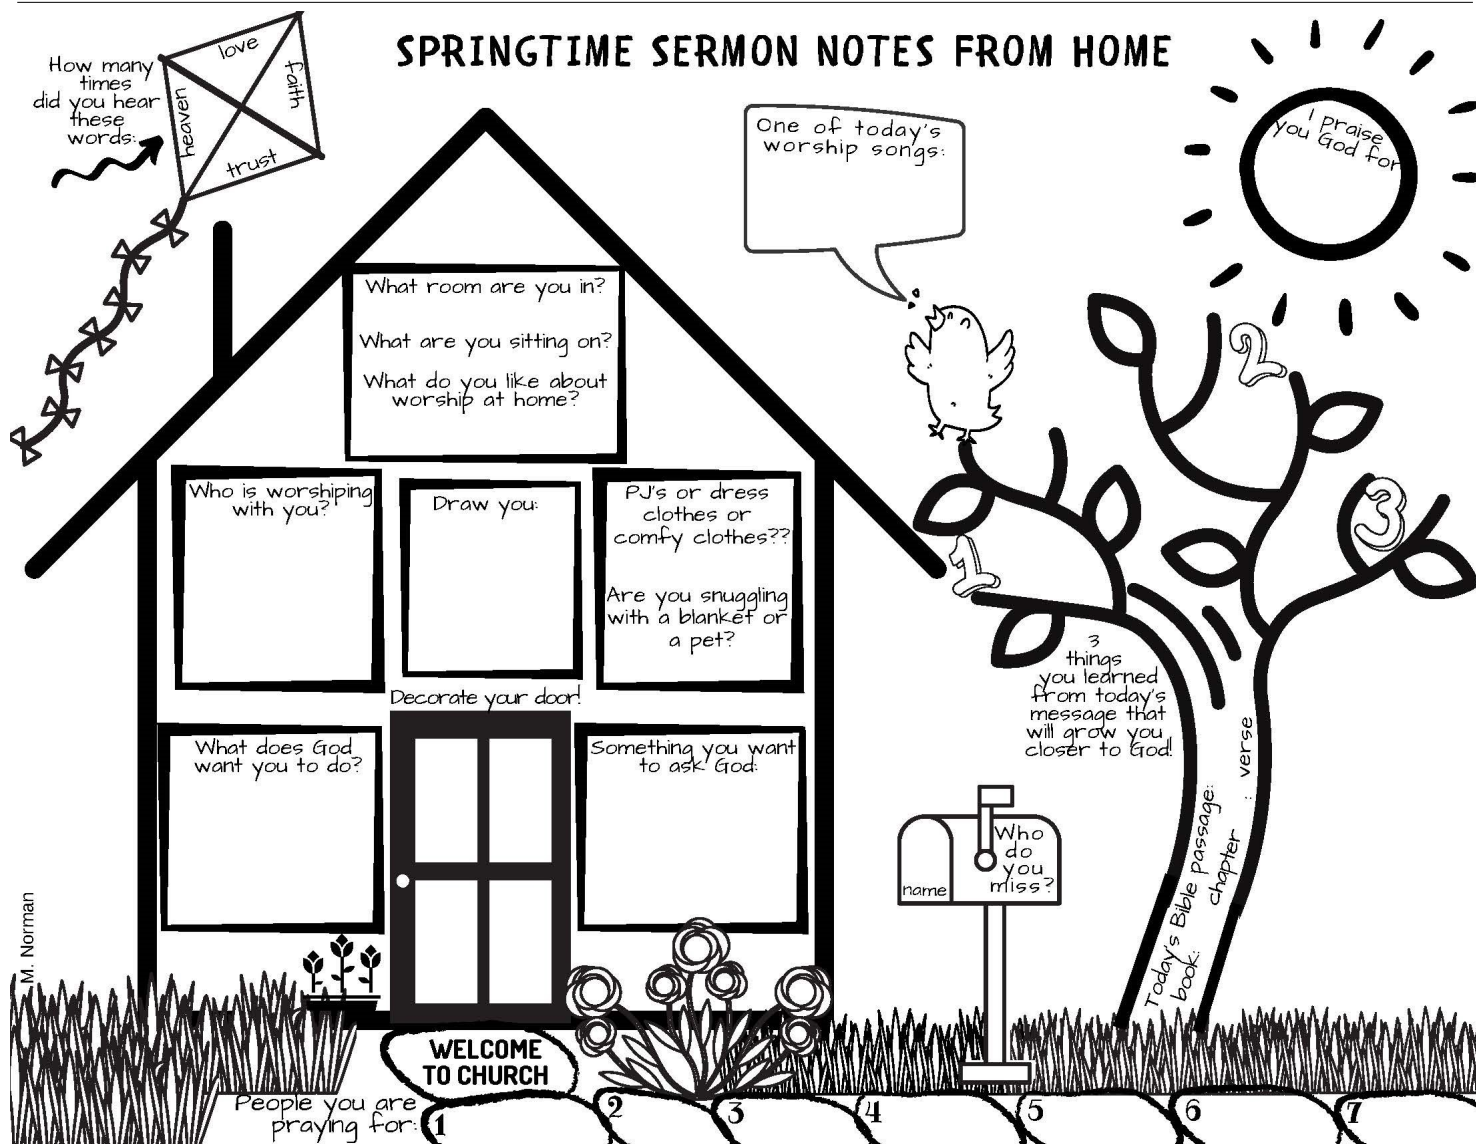 SPRINGTIME SERMON NOTES FROM HOME
How many
times
did you hear
these
words:
love
faith
heaven
trust
One of today's
worship songs:
I praise
you God for
What room are you in?
What are you sitting on?
What do you like about
worship at home?
Who is worshiping
with you?
Draw you:
PJ's or dress
clothes or
comfy clothes??
Are you snuggling
with a blanket or
a pet?
Decorate your door!
What does God
want you to do?
Something you want
to ask God:
1
2
3
3
things
you learned
from today's
message that
will grow you
closer to God!
Today's Bible passage:
book:
chapter : verse
Who
do
you
miss?
name
M. Norman
WELCOME
TO CHURCH
People you are
praying for:
1
2
3
4
5
6
7